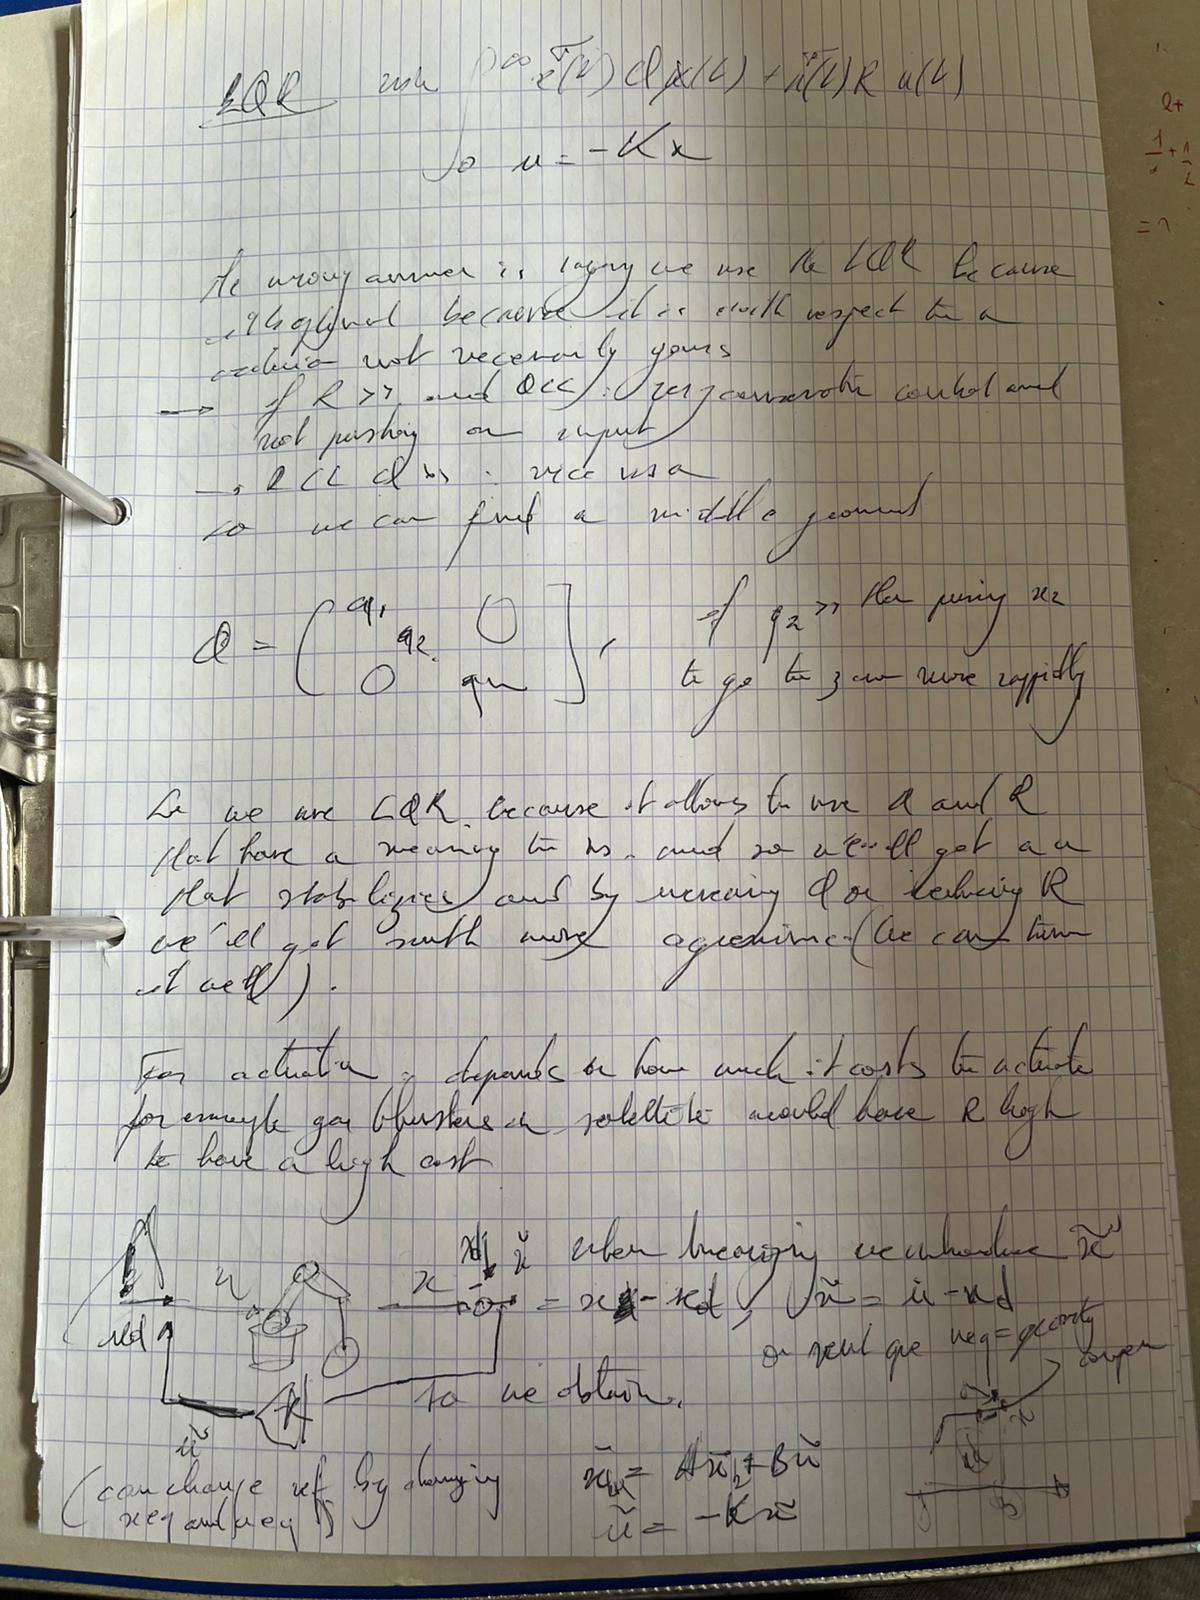 LQR min ∫ ∞ x^T(t) Q x(t) + u^T(t) R u(t)
so u = -Kx
the wrong answer is saying we use the LQR because
it's optimal because it is with respect to a
not necessarily yours
→ if R >> and Q << : very conservative control and
not pushing on input
→ R << Q >> : vice versa
so we can find a middle ground
Q = ( q1 q2 0 0 qn ], if q2 >> then pushing x2
to go to zero more rappidly
we use LQR because it allows to use Q and R
that have a meaning to us and so we'll get a u
that stabilizes and by increasing Q or reducing R
we'll get smth more (we can tune
it well).
For actuation : depends on how much it costs to actuate
for example gas satellite would have R high
to have a high cost
u x xd x̃ when we introduce x̃
= x - xd, ũ = u - ud
ueq = gravity
K so we obtain,
ũ
(can change ref by changing
xeq and ueq)
= Ax̃ + Bũ
ũ = -Kx̃